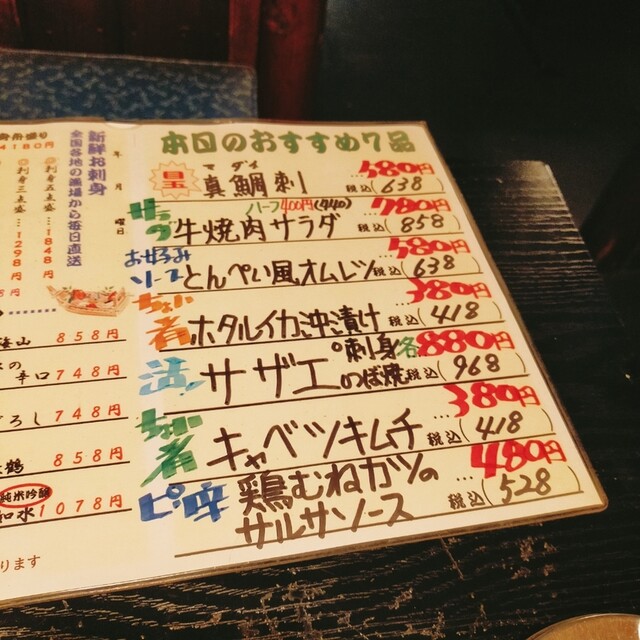 本日のおすすめ7品
目玉
マダイ
真鯛刺
580円
税込(638)
サラダ
牛焼肉サラダ
ハーフ400円(440)
780円
税込(858)
お好みソース
とんぺい風オムレツ
580円
税込(638)
ちょい肴
ホタルイカ沖漬け
380円
税込(418)
活
サザエ
刺身
のつぼ焼
各880円
税込(968)
ちょい肴
キャベツキムチ
380円
税込(418)
ピリ辛
鶏むねカツの
サルサソース
480円
税込(528)
年 月 曜日
新鮮お刺身
全国各地の漁場から毎日直送
4180円
刺身五点盛…1848円
刺身三点盛…1298円
858円
辛口 748円
748円
鶴 858円
純米吟醸
和水 1078円
ります